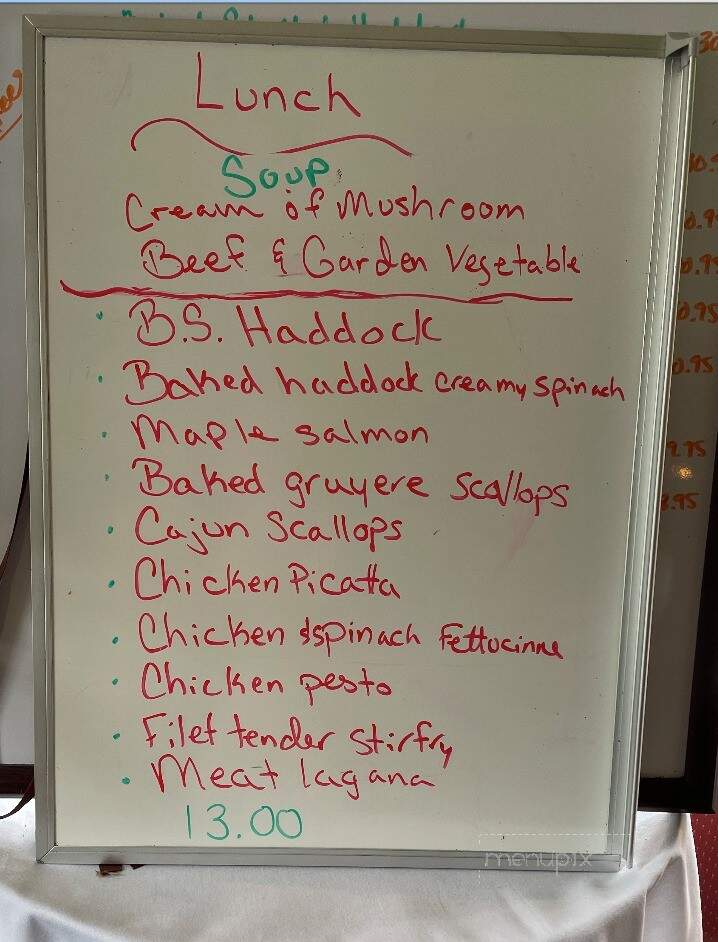 Lunch
Soup
Cream of Mushroom
Beef & Garden Vegetable
• B.S. Haddock
• Baked haddock creamy spinach
• Maple salmon
• Baked gruyere scallops
• Cajun Scallops
• Chicken Picatta
• Chicken & spinach Fettucinne
• Chicken pesto
• Filet tender stirfry
• Meat lagana
13.00
menupix
0.95
9.75
8.95